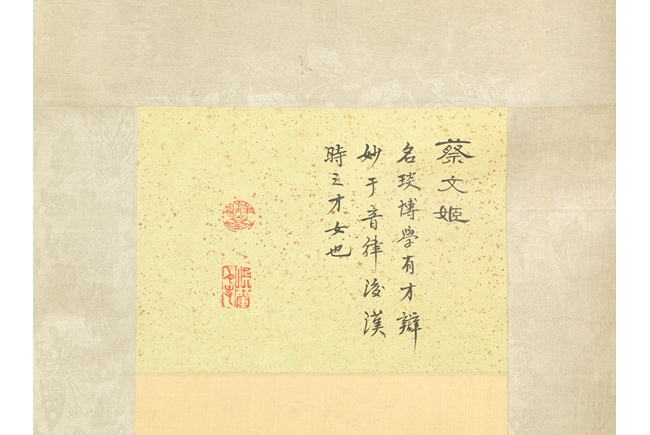 蔡文姬
名琰博學有才辯
妙于音律後漢
時之才女也